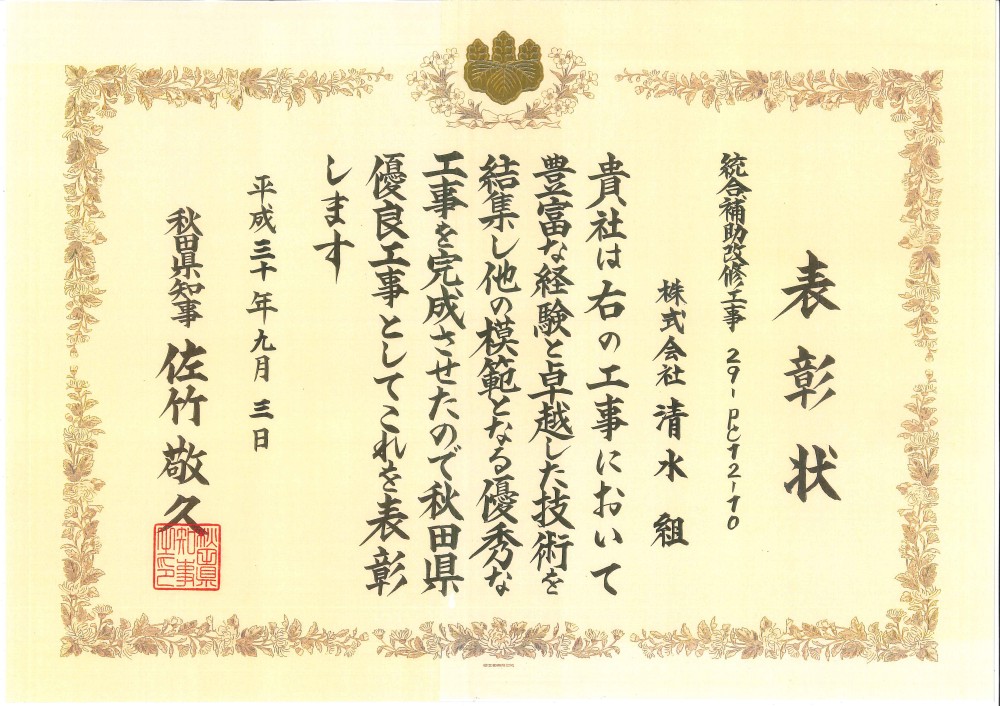 表彰状
統合補助改修工事 29-PC12-10
株式会社 清水 組
貴社は右の工事において
豊富な経験と卓越した技術を
結集し他の模範となる優秀な
工事を完成させたので秋田県
優良工事としてこれを表彰
します
平成三十年九月三日
秋田県知事 佐竹敬久
秋田県
知事
之印